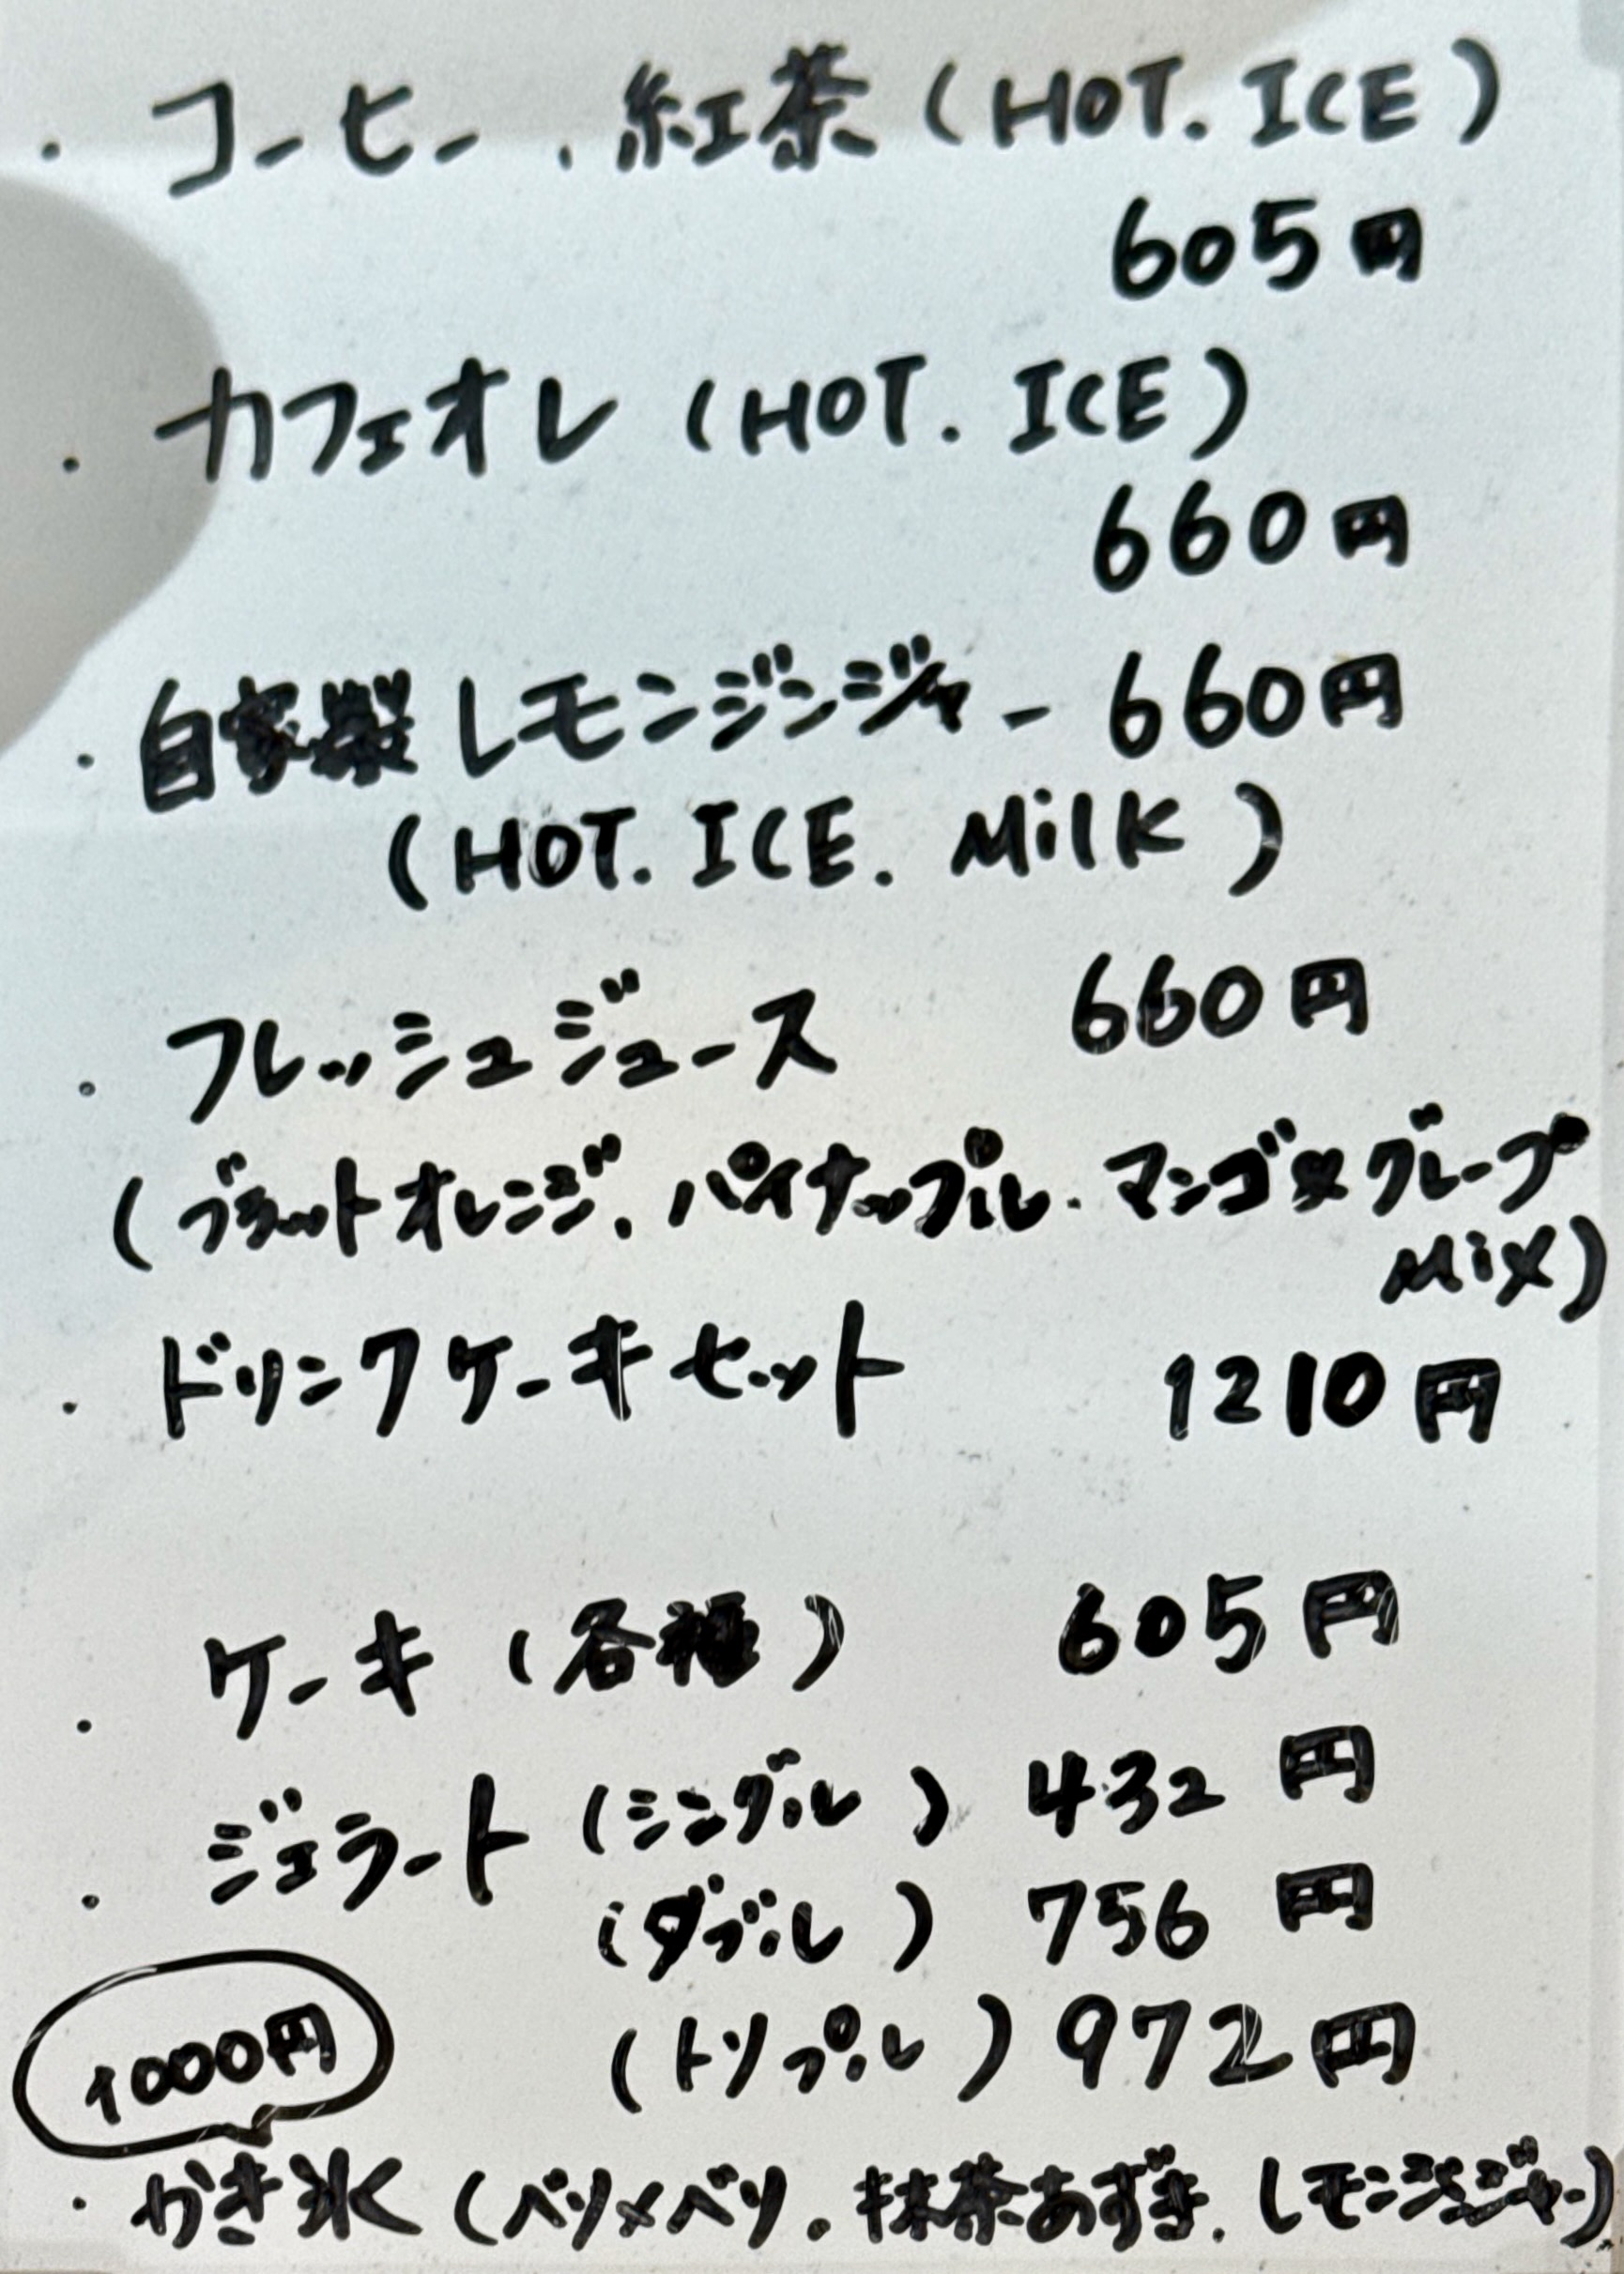 ・コーヒー、紅茶(HOT. ICE)
605円
・カフェオレ(HOT. ICE)
660円
・自家製レモンジンジャー 660円
(HOT. ICE. Milk)
・フレッシュジュース 660円
(ブラットオレンジ、パイナップル・マンゴ×グレープ
Mix)
・ドリンクケーキセット 1210円
・ケーキ(各種) 605円
・ジェラート(シングル) 432円
(ダブル) 756円
(トリプル) 972円
1000円
・かき氷(ベリ×ベリ、抹茶あずき、レモンジンジャー)